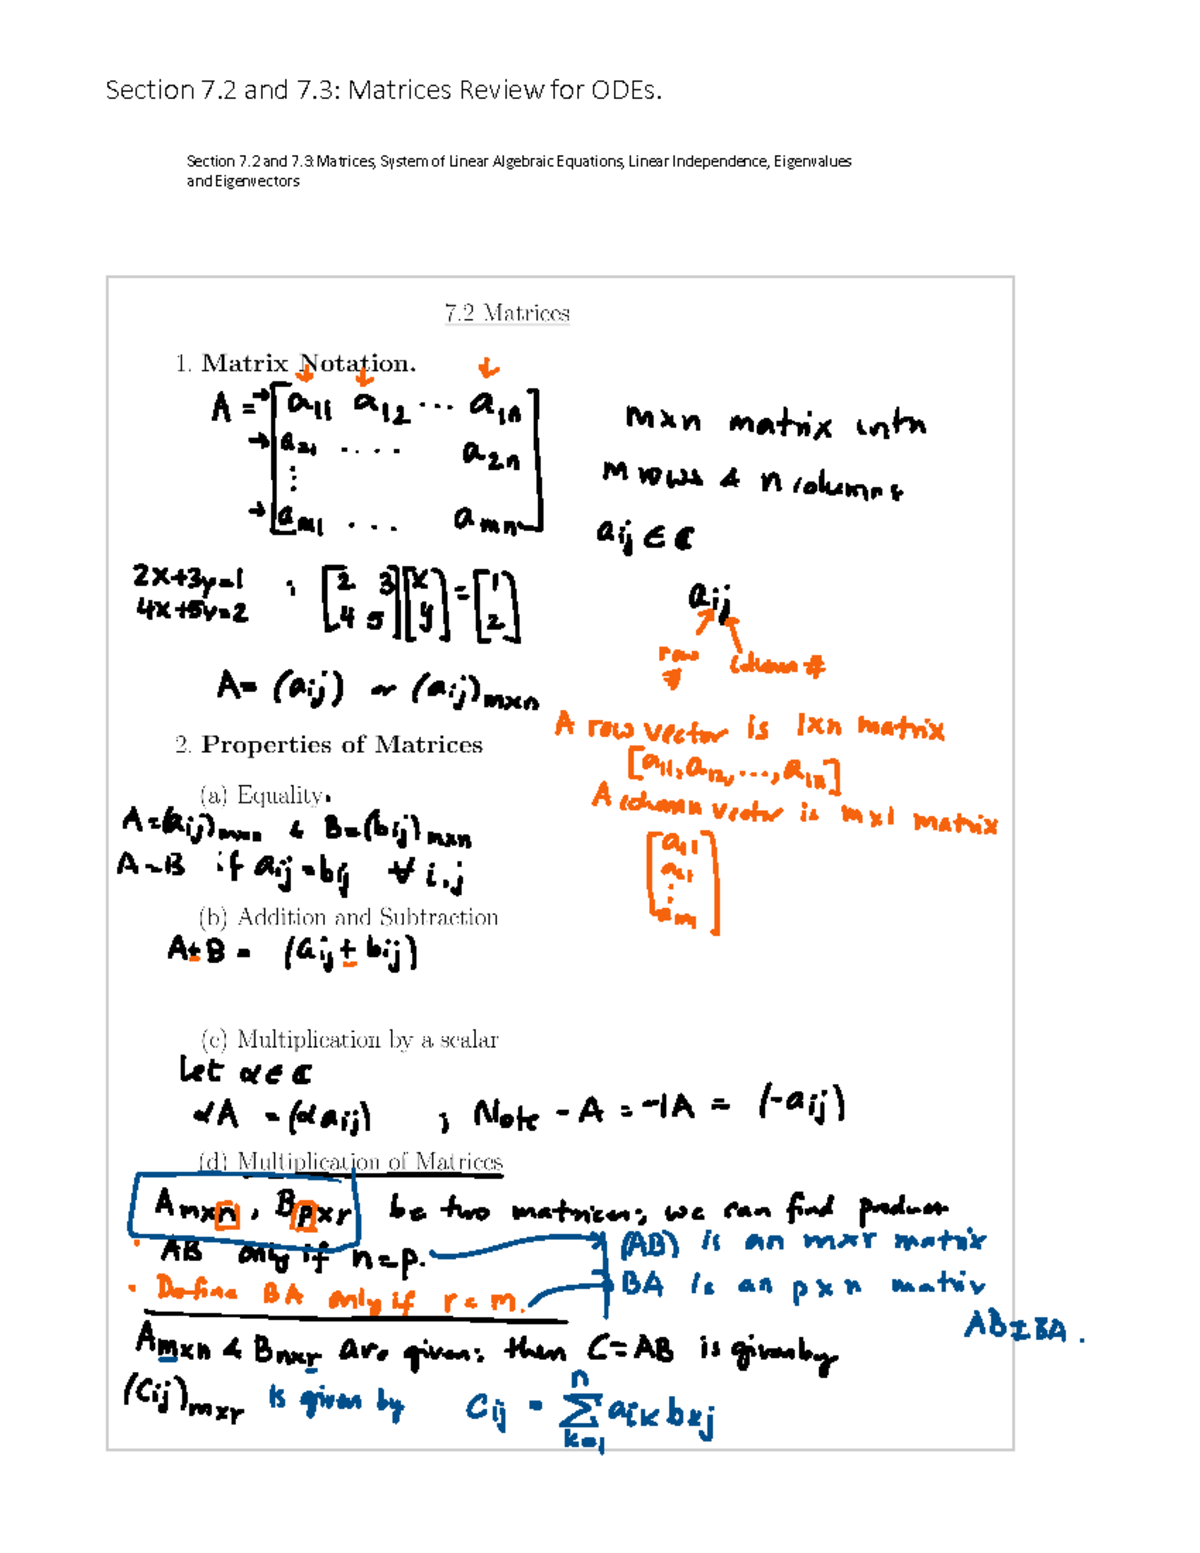 Section 7.2 and 7.3: Matrices Review for ODEs.
Section 7.2 and 7.3: Matrices, System of Linear Algebraic Equations, Linear Independence, Eigenvalues
and Eigenvectors
7.2 Matrices
1. Matrix Notation.
A = [a11 a12 ... a1n
a21 .... a2n
⋮
am1 ... amn]
mxn matrix with
m rows & n columns
aij ∈ ℂ
2x+3y=1
4x+5y=2
; [2 3 4 5] [x y] = [1 2]
aij
row # column #
A = (aij) or (aij)mxn
A row vector is 1xn matrix
[a11, a12, ..., a1n]
A column vector is mx1 matrix
[a11
a21
⋮
am1]
2. Properties of Matrices
(a) Equality.
A=(aij)mxn & B=(bij)mxn
A=B if aij=bij ∀ i,j
(b) Addition and Subtraction
A±B = (aij ± bij)
(c) Multiplication by a scalar
Let α ∈ ℂ
αA = (αaij) ; Note -A = -1A = (-aij)
(d) Multiplication of Matrices
Amxn, Bpxr be two matrices; we can find product
AB only if n=p. (AB) is an mxr matrix
• Define BA only if r=m. BA is an pxn matrix
AB≠BA.
Amxn & Bnxr are given; then C=AB is given by
(Cij)mxr is given by Cij = n∑k=1 aik bkj